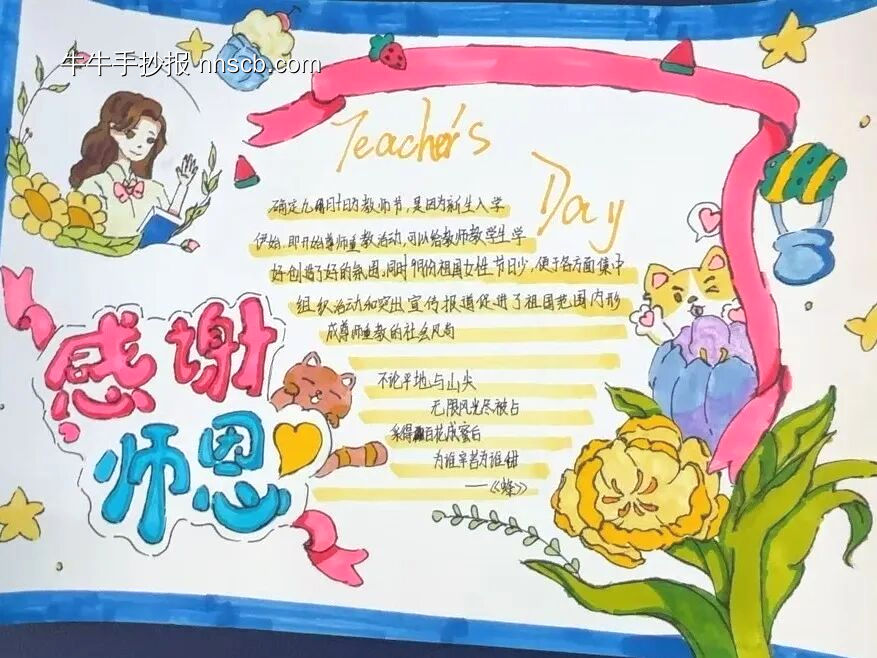 牛牛手抄报 nhscb.com
Teacher's
Day
确定九月十日为教师节,是因为新生入学
伊始,即开始尊师重教活动,可以给教师教学生学
好创造了好的氛围,同时9月份祖国女性节日少,便于各方面集中
组织活动和突出宣传报道促进了祖国范围内形
成尊师重教的社会风尚
感谢
师恩
不论平地与山尖
无限风光尽被占
采得百花成蜜后
为谁辛苦为谁甜
——《蜂》